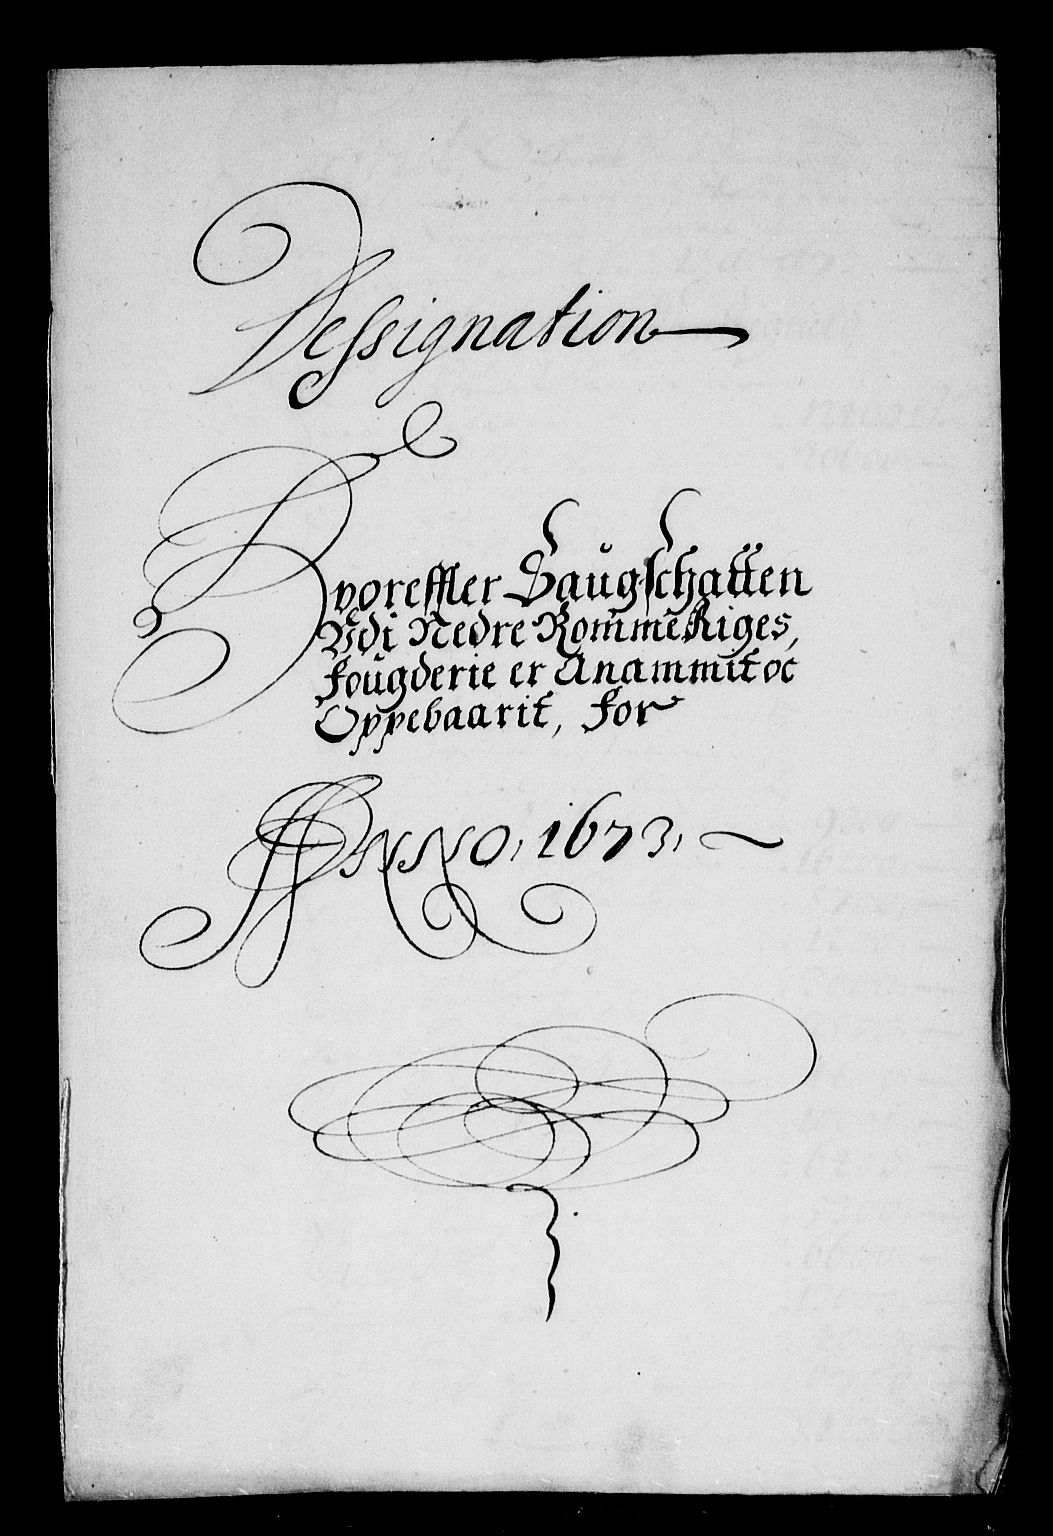 Dessignation
Hvoreffter Saugschatten
Udi Nedre Rommerriges,
Fougderie er Anammit oc
Oppebaarit, for
ANNO, 1673,